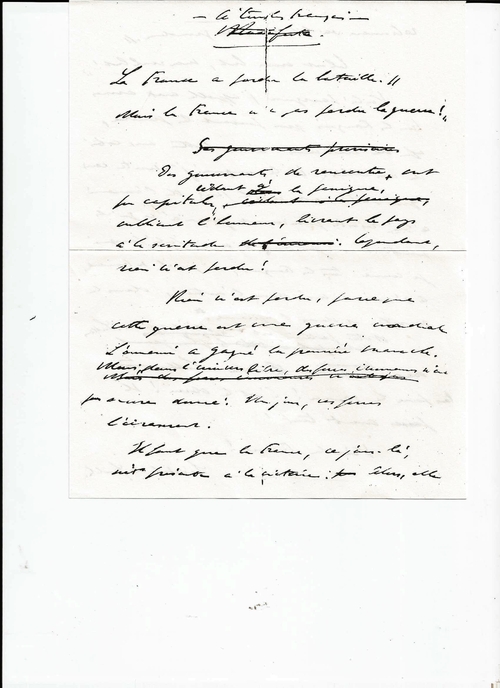 - A tous les Français -
Manifeste.
La France a perdu la bataille !
Mais la France n'a pas perdu la guerre !
Des gouvernants provisoires
Des gouvernants de rencontre ont
cédant à la panique,
pu capituler, cédant à la panique,
oubliant l'honneur, livrant le pays
à la servitude. Cependant,
rien n'est perdu !
Rien n'est perdu, parce que
cette guerre est une guerre mondiale
L'ennemi a gagné la première manche.
Mais, dans l'univers libre, des forces immenses n'ont
Mais des forces immenses
pas encore donné. Un jour, ces forces
l'écraseront.
Il faut que la France, ce jour-là,
soit présente à la victoire. Alors, elle